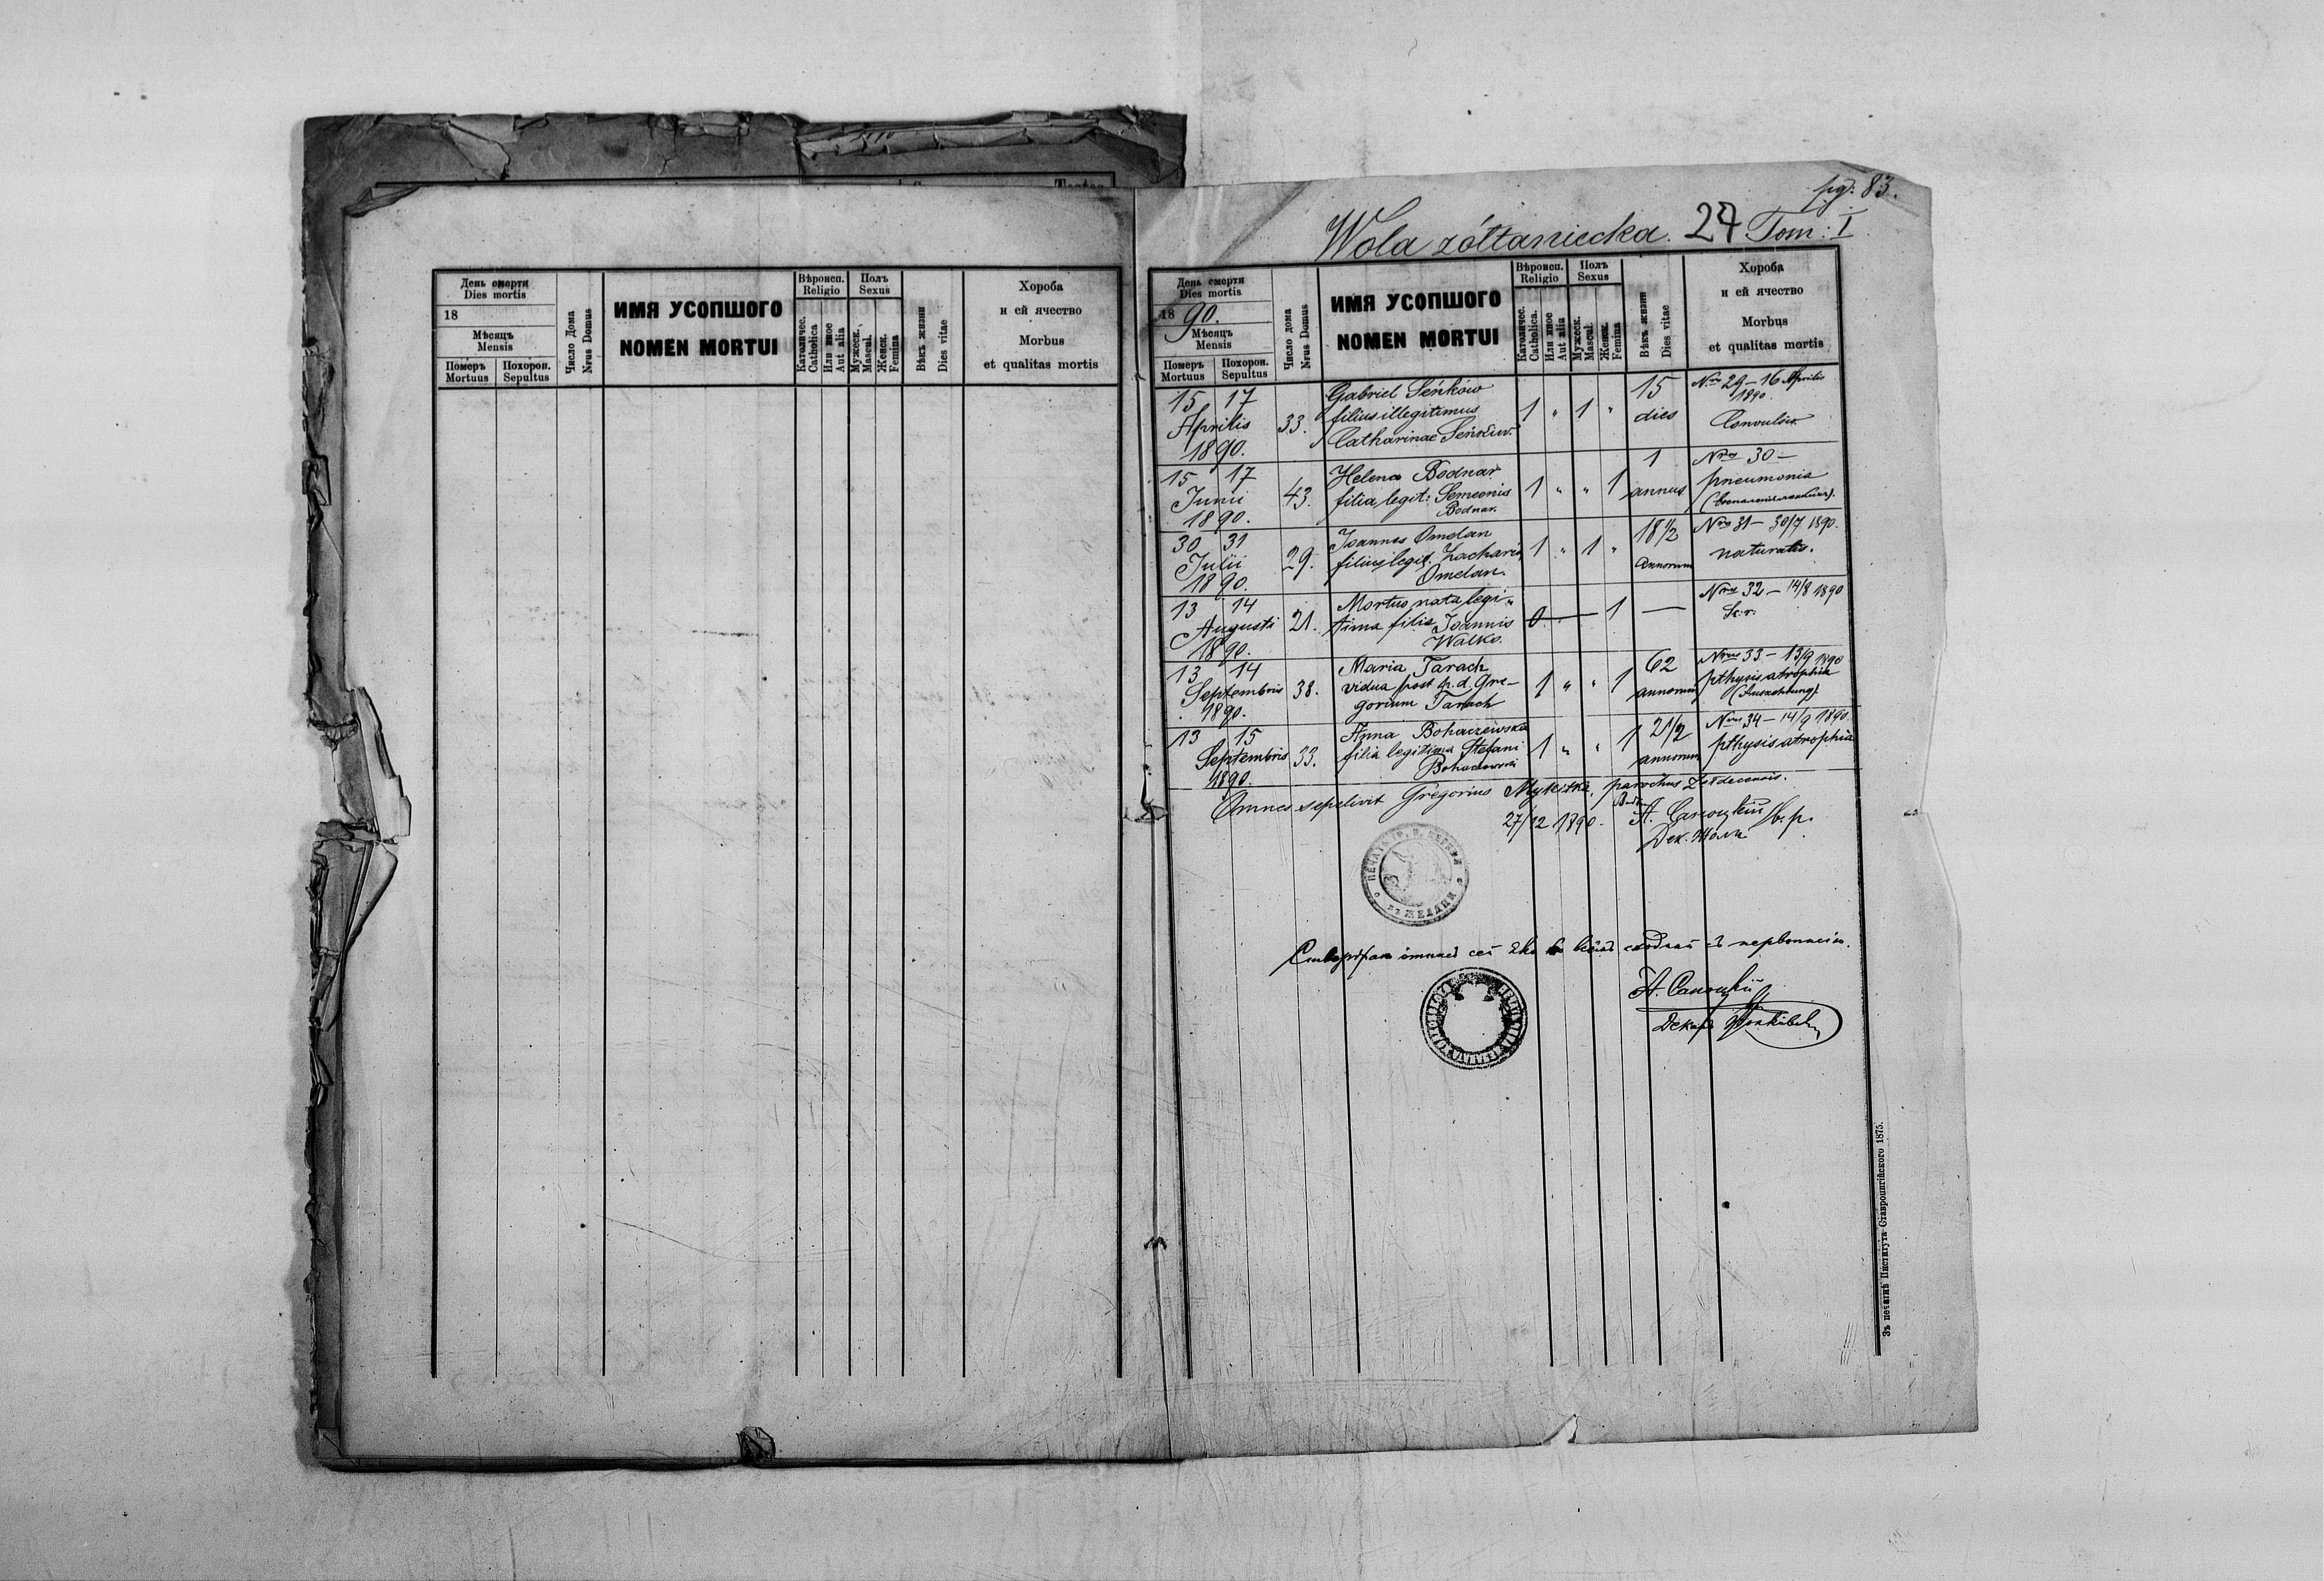 День смерти
Dies mortis
18
Мѣсяцъ
Mensis
Померъ
Mortuus
Похорон.
Sepultus
Число Дома
Nrus Domus
ИМЯ УСОПШОГО
NOMEN MORTUI
Вѣроисп.
Religio
Католичес.
Catholica
Или иное
Aut alia
Полъ
Sexus
Мужеск.
Mascul.
Женск.
Femina
Вѣкъ жизни
Dies vitae
Хороба
и ей ячество
Morbus
et qualitas mortis
pg. 83.
Wola żółtaniecka. 27 Tom: I
День смерти
Dies mortis
1890.
Мѣсяцъ
Mensis
Померъ
Mortuus
Похорон.
Sepultus
Число дома
Nrus Domus
ИМЯ УСОПШОГО
NOMEN MORTUI
Вѣроисп.
Religio
Католичес.
Catholica.
Или иное
Aut alia
Полъ
Sexus
Мужеск.
Mascul.
Женск.
Femina
Вѣкъ жизни
Dies vitae
Хороба
и ей ячество
Morbus
et qualitas mortis
15 17
Aprilis
1890.
33.
Gabriel Seńków
filius illegitimus
Catharinae Seńków.
1 " 1 "
15
dies
Nrus 29 – 16 Aprilis
1890.
15 17
Junii
1890.
43.
Helena Bodnar
filia legit: Semeonis
Bodnar.
1 " " 1
1
annus
Nrus 30 –
pneumonia
30 31
Julii
1890.
29.
Joannes Omelan
filius legit. Zachariae
Omelan.
1 " 1 "
18 1/2
annorum
Nrus 31 – 30/7 1890.
naturalis.
13 14
Augusti
1890.
21.
Mortuo nata legi-
tima filia Joannis
Walko.
0 — 1
—
Nrus 32 – 14/8 1890
13 14
Septembris
1890.
38.
Maria Tarach
vidua post p. d. Gre-
gorium Tarach
1 " " 1
62
annorum
Nrus 33 – 13/9 1890
pthysis atrophia
(Auszehrung).
13 15
Septembris
1890.
33.
Anna Bohaczewska
filia legitima Stefani
1 " " 1
2 1/2
annorum
Nrus 34 – 14/9 1890.
pthysis atrophia
Omnes sepelivit Gregorius Mykitka, parochus
27/12 1890. А. Саноцкій
въ ЖЕЛДЦИ
А. Саноцкій
Зъ печатнѣ Института Ставропигійского 1875.